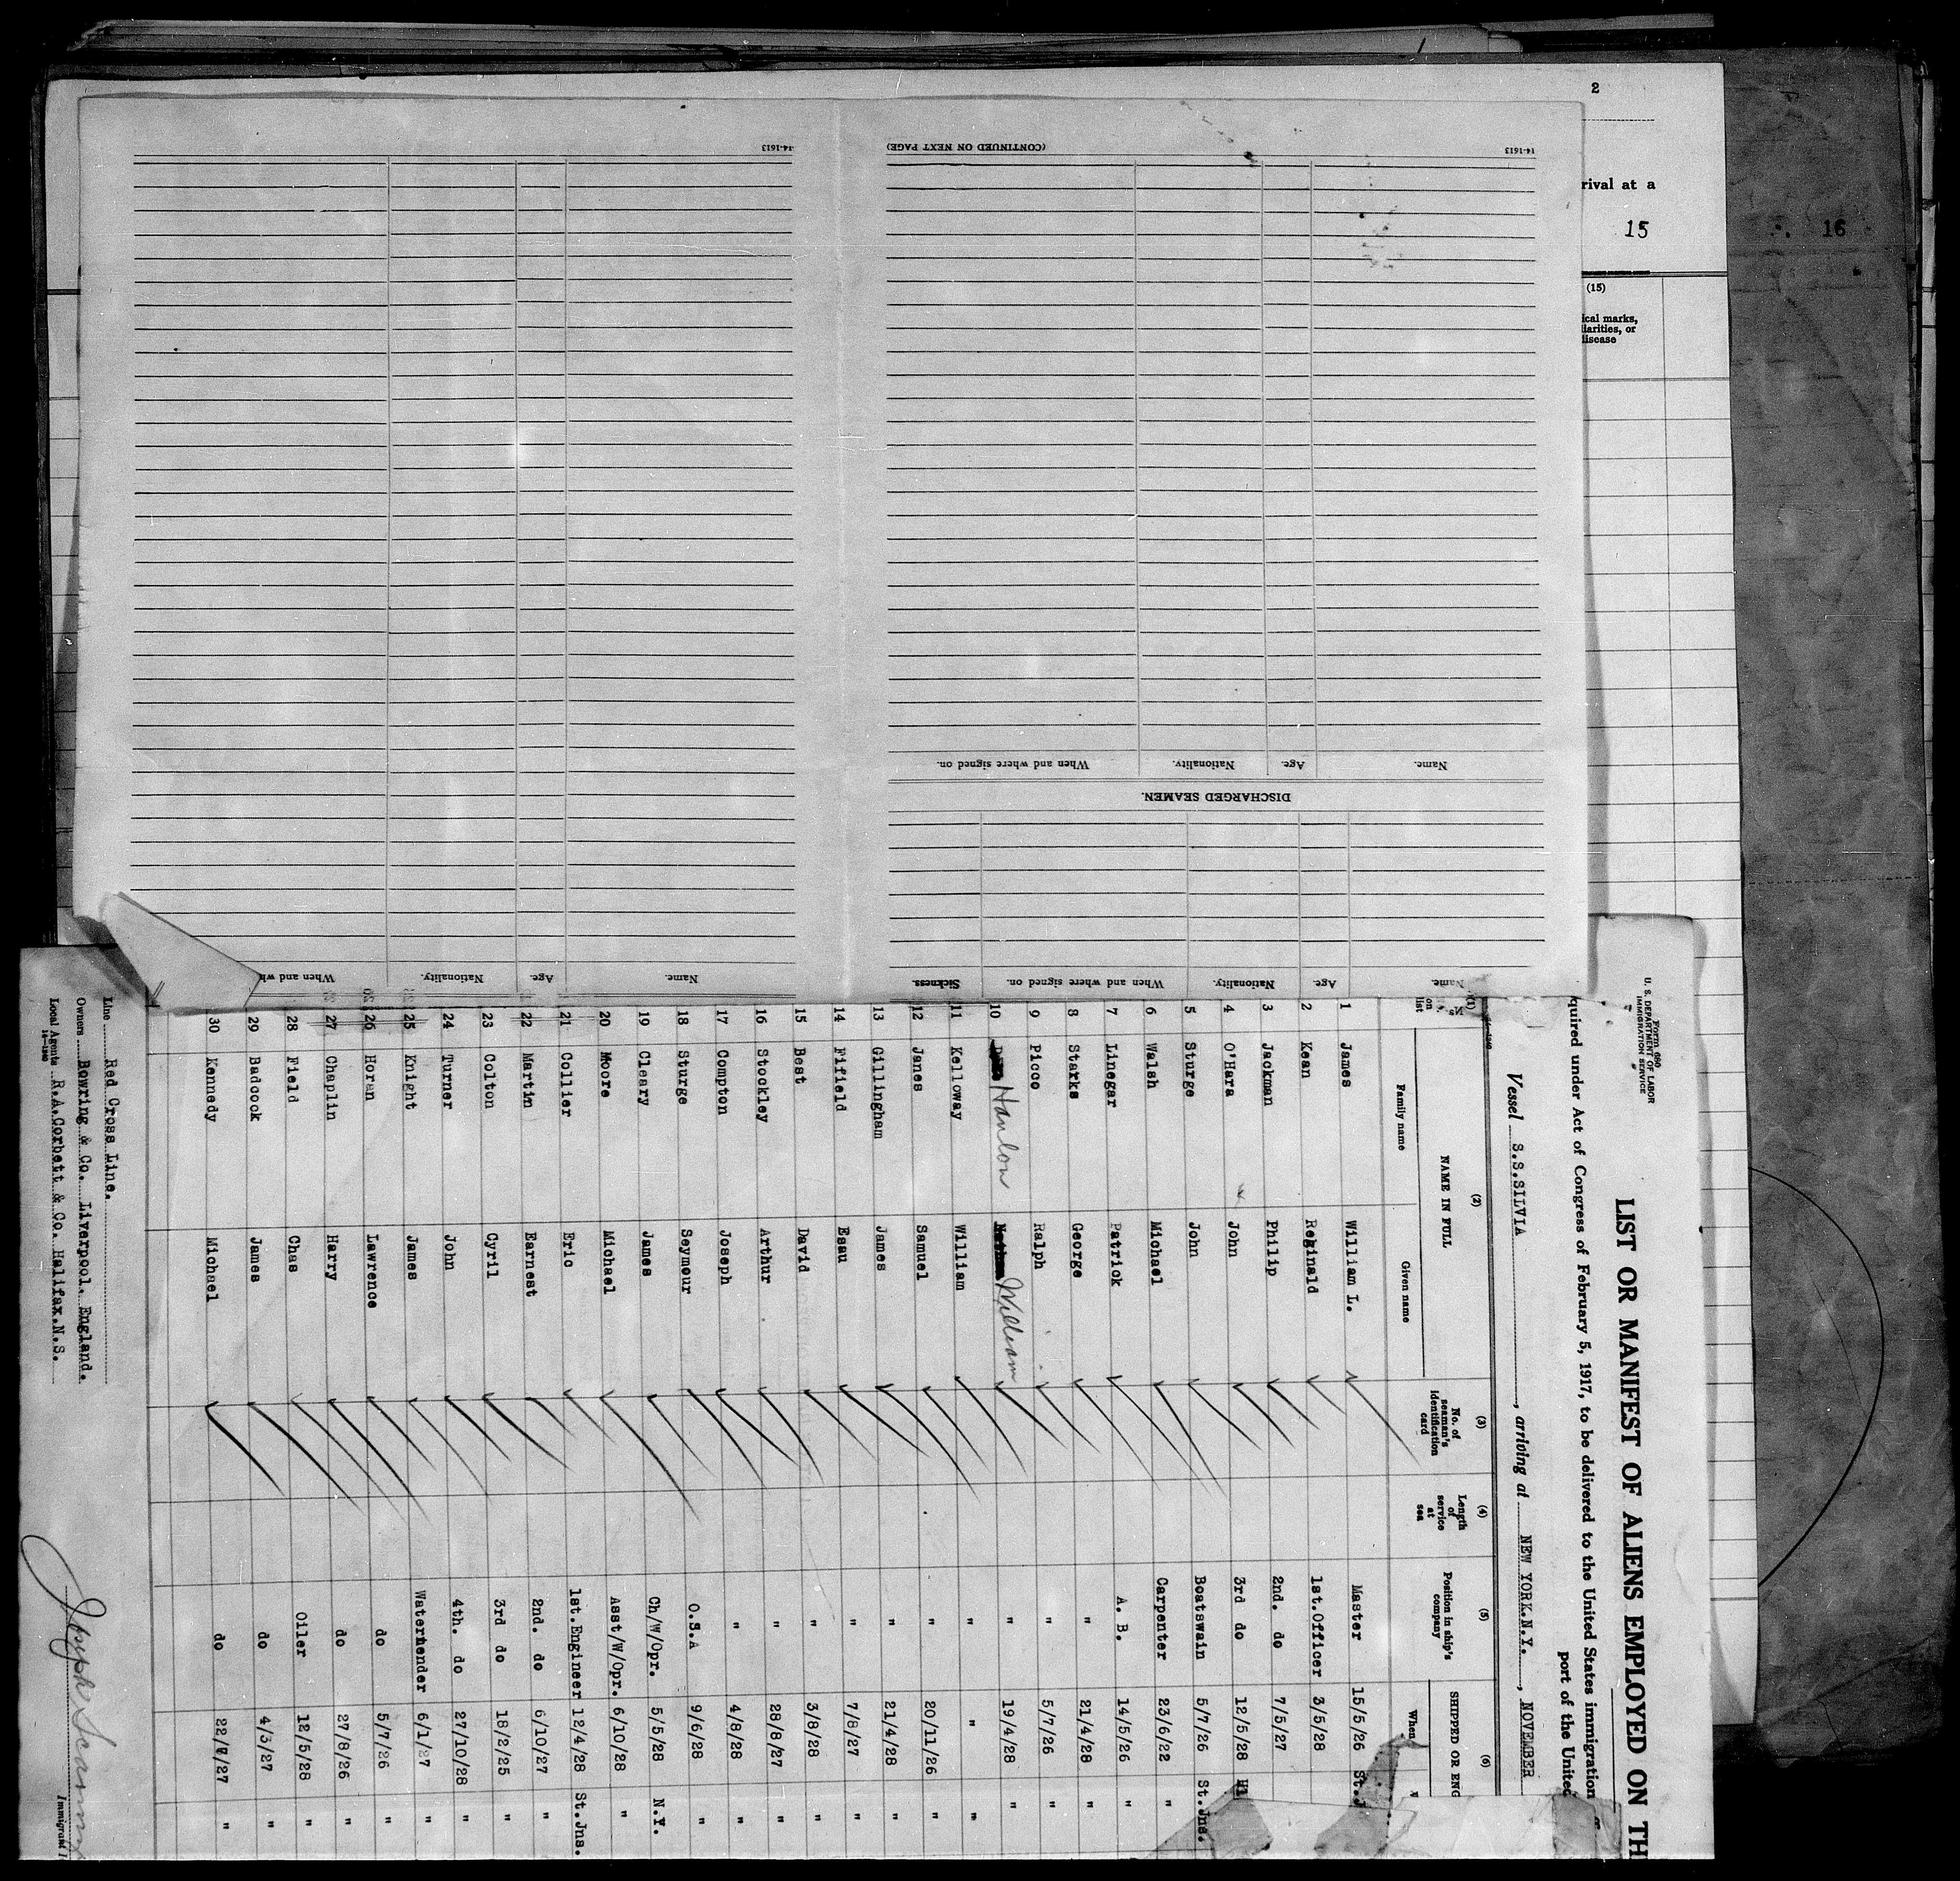 2
rival at a
15
16
(15)
ical marks,
liarities, or
disease
14-1613
14-1613
(CONTINUED ON NEXT PAGE)
Name. Age. Nationality. When and where signed on.
DISCHARGED SEAMEN.
Name. Age. Nationality. When and where signed on. Sickness.
Name. Age. Nationality. When and wh
Form 680
U. S. DEPARTMENT OF LABOR
IMMIGRATION SERVICE
LIST OR MANIFEST OF ALIENS EMPLOYED ON TH
quired under Act of Congress of February 5, 1917, to be delivered to the United States immigration
port of the United
Vessel S.S.SILVIA, arriving at NEW YORK.N.Y., NOVEMBER
(1) (2) (3) (4) (5) (6)
No. on list NAME IN FULL No. of seaman's identification card Length of service at sea Position in ship's company SHIPPED OR ENG
Family name Given name When
1 James William L. Master 15/5/26 St.J
2 Kean Reginald 1st.Officer 3/5/28
3 Jackman Philip 2nd. do 7/5/27
4 O'Hara John 3rd do 12/5/28
5 Sturge John Boatswain 5/7/26 St.Jns.
6 Walsh Michael Carpenter 23/6/22 "
7 Linegar Patrick A. B. 14/5/26 "
8 Starks George " 21/4/28 "
9 Picco Ralph " 5/7/26 "
10 Hanlon William " 19/4/28 "
11 Kelloway William " " "
12 Janes Samuel " 20/11/26 "
13 Gillingham James " 21/4/28 "
14 Fifield Esau " 7/8/27 "
15 Best David " 3/8/28 "
16 Stockley Arthur " 28/8/27 "
17 Compton Joseph " 4/8/28 "
18 Sturge Seymour O.S.A 9/6/28 "
19 Cleary James Ch/W/Opr. 5/5/28 N.Y.
20 Moore Michael Asst/W/Opr. 6/10/28 "
21 Collier Eric 1st.Engineer 12/4/28 St.Jns.
22 Martin Earnest 2nd. do 6/10/27 "
23 Colton Cyril 3rd do 18/2/25 "
24 Turner John 4th. do 27/10/28 "
25 Knight James Watertender 6/1/27 "
26 Horan Lawrence do 5/7/26 "
27 Chaplin Harry do 27/8/26 "
28 Field Chas Oiler 12/5/28 "
29 Badcock James do 4/3/27 "
30 Kennedy Michael do "
Line Red Cross Line.
Owners Bowring & Co. Liverpool. England.
Local Agents R.A.Corbett & Co. Halifax.N.S.
Joseph
Immigrant I